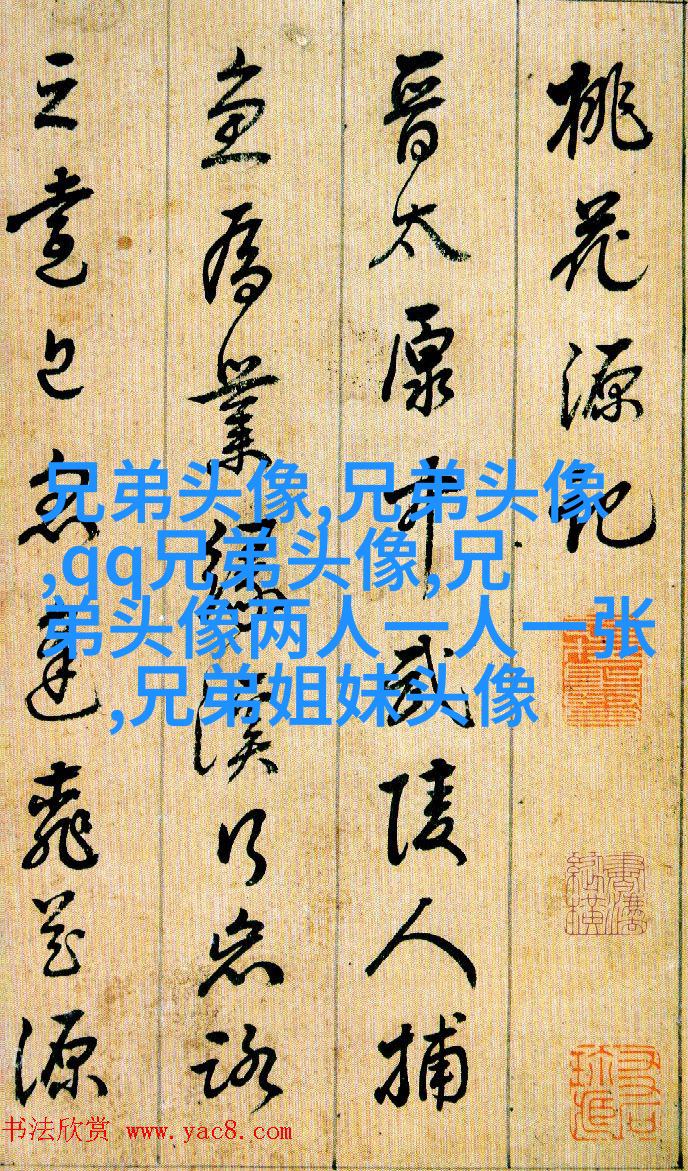 桃花源記
晉太原中武陵人捕
魚為業緣溪行忘路
之遠近忽逢桃花源
兄弟头像,兄弟头像
,qq兄弟头像,兄
弟头像两人一人一张
,兄弟姐妹头像
书法欣赏 www.yac8.com